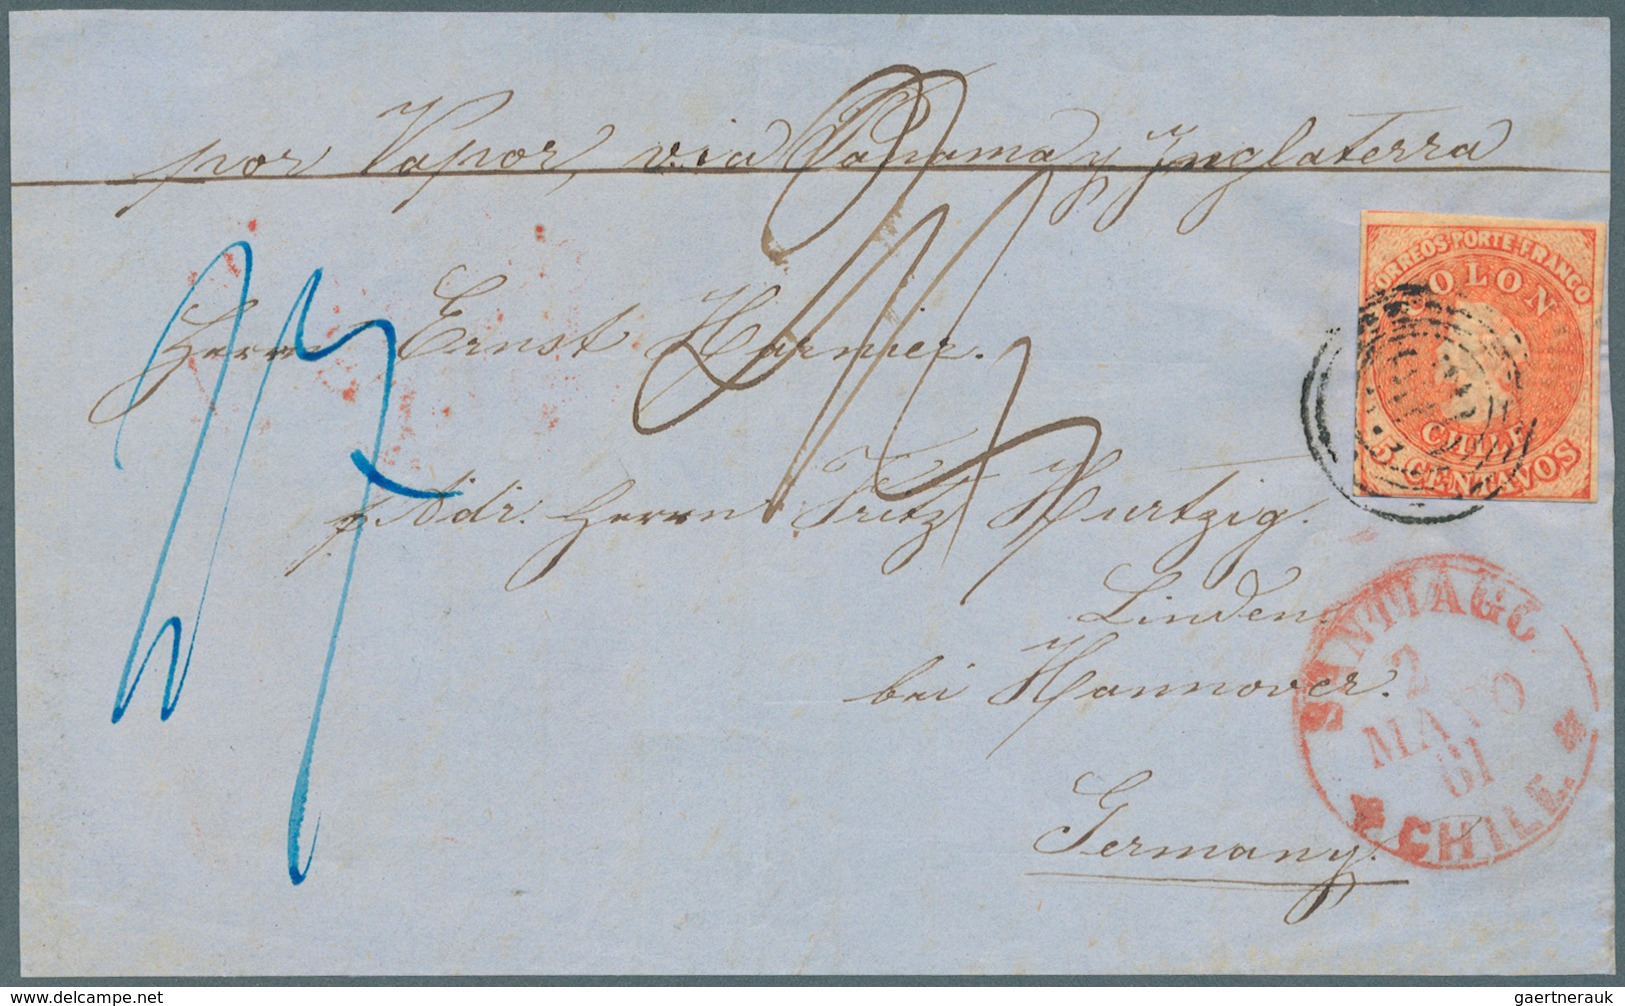 por Vapor, via Panama y Inglaterra
Herrn Ernst Harnier.
p. Adr. Herrn Fritz Hurtzig.
Linden
bei Hannover.
Germany.
CORREOS-PORTE-FRANCO
COLON
CHILE
5 CENTAVOS
SANTIAGO
2
MAYO
61
CHILE.
www.delcampe.net
gaertnerauk